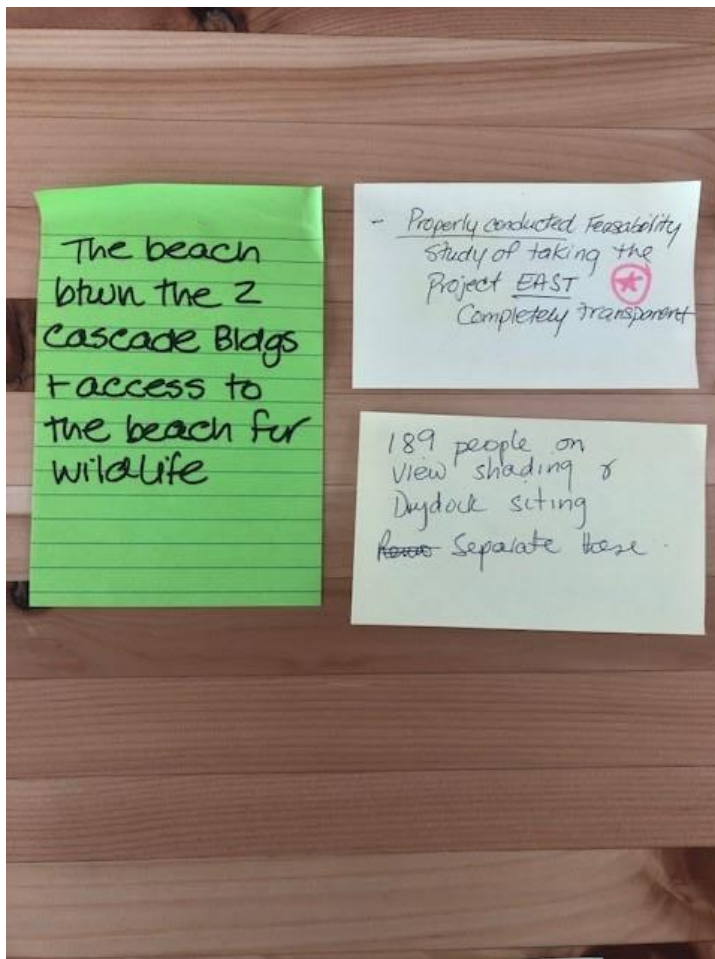 The beach
btwn the 2
cascade Bldgs
+ access to
the beach for
wildlife
- Properly conducted Feasability
Study of taking the
Project EAST
Completely transparent
189 people on
view shading &
Drydock siting
Separate these.